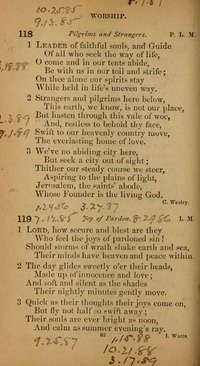 10.25.85
WORSHIP.
9.13.85
118 Pilgrims and Strangers. P. L. M.
1 LEADER of faithful souls, and Guide
Of all who seek the way of life,
O come and in our tents abide,
Be with us in our toil and strife;
On thee alone our spirits stay
While held in life's uneven way.
2 Strangers and pilgrims here below,
This earth, we know, is not our place,
But hasten through this vale of woe,
And, restless to behold thy face,
Swift to our heavenly country move,
The everlasting home of love.
3 We've no abiding city here,
But seek a city out of sight;
Thither our steady course we steer,
Aspiring to the plains of light,
Jerusalem, the saints' abode,
Whose Founder is the living God.
C. Wesley.
1.24.86 3.27.87
119 7.12.85 Joy of Pardon. 8-29-86 L. M.
1 LORD, how secure and blest are they
Who feel the joys of pardoned sin!
Should storms of wrath shake earth and sea,
Their minds have heaven and peace within.
2 The day glides sweetly o'er their heads,
Made up of innocence and love;
And soft and silent as the shades
Their nightly minutes gently move.
3 Quick as their thoughts their joys come on,
But fly not half so swift away;
Their souls are ever bright as noon,
And calm as summer evening's ray.
62 I. Watts.
9.25.87 1.15.88
10.21.88
3.17.89